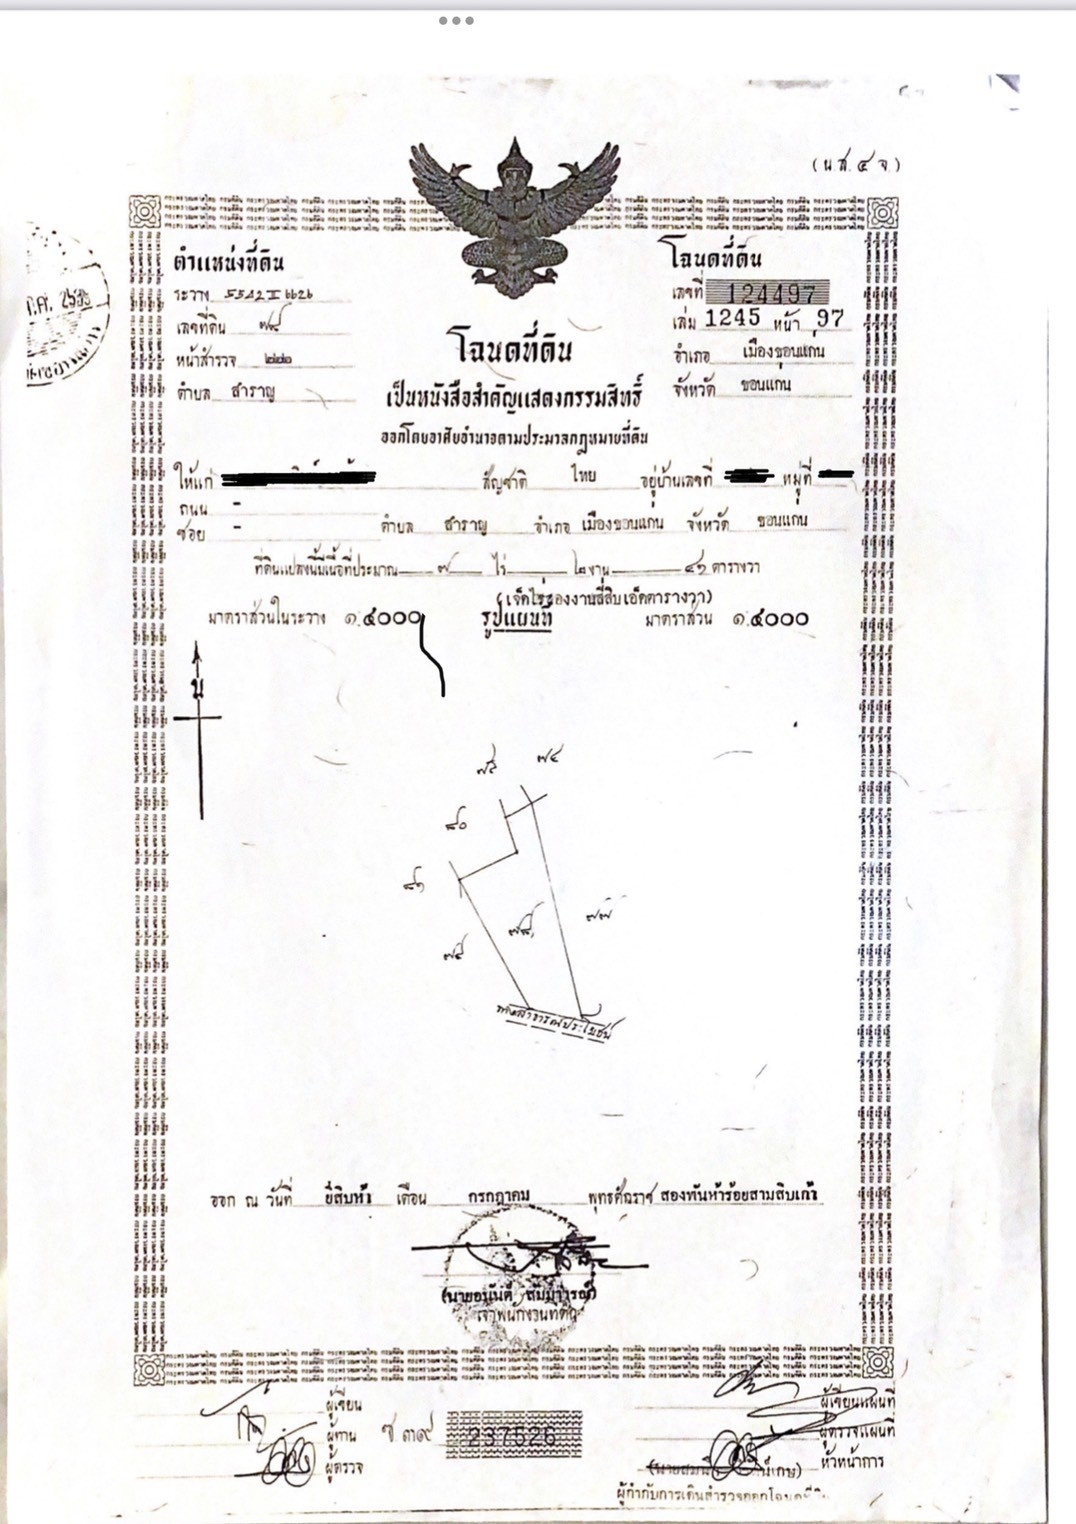 (น.ส. ๔ จ.)
ตำแหน่งที่ดิน
โฉนดที่ดิน
ระวาง 5542 II 6626
เลขที่ 124497
เลขที่ดิน ๗๘
เล่ม 1245 หน้า 97
หน้าสำรวจ
อำเภอ เมืองขอนแก่น
ตำบล สำราญ
จังหวัด ขอนแก่น
โฉนดที่ดิน
เป็นหนังสือสำคัญแสดงกรรมสิทธิ์
ออกโดยอาศัยอำนาจตามประมวลกฎหมายที่ดิน
ให้แก่ สัญชาติ ไทย อยู่บ้านเลขที่ หมู่ที่
ถนน -
ซอย - ตำบล สำราญ อำเภอ เมืองขอนแก่น จังหวัด ขอนแก่น
ที่ดินแปลงนี้มีเนื้อที่ประมาณ ๗ ไร่ ๒ งาน ๔๑ ตารางวา
(เจ็ดไร่สองงานสี่สิบเอ็ดตารางวา)
มาตราส่วนในระวาง ๑:๔๐๐๐ รูปแผนที่ มาตราส่วน ๑:๔๐๐๐
น
๗๔
๘๐
๘๑
๗๘
๗๗
๗๙
ทางสาธารณประโยชน์
ออก ณ วันที่ ยี่สิบห้า เดือน กรกฎาคม พุทธศักราช สองพันห้าร้อยสามสิบเก้า
เจ้าพนักงานที่ดิน
ผู้เขียน
ผู้ทาน
ผู้ตรวจ
ซ ๓๙ 237526
ผู้เขียนแผนที่
ผู้ตรวจแผนที่
หัวหน้าการ
ผู้กำกับการเดินสำรวจออกโฉนดที่ดิน